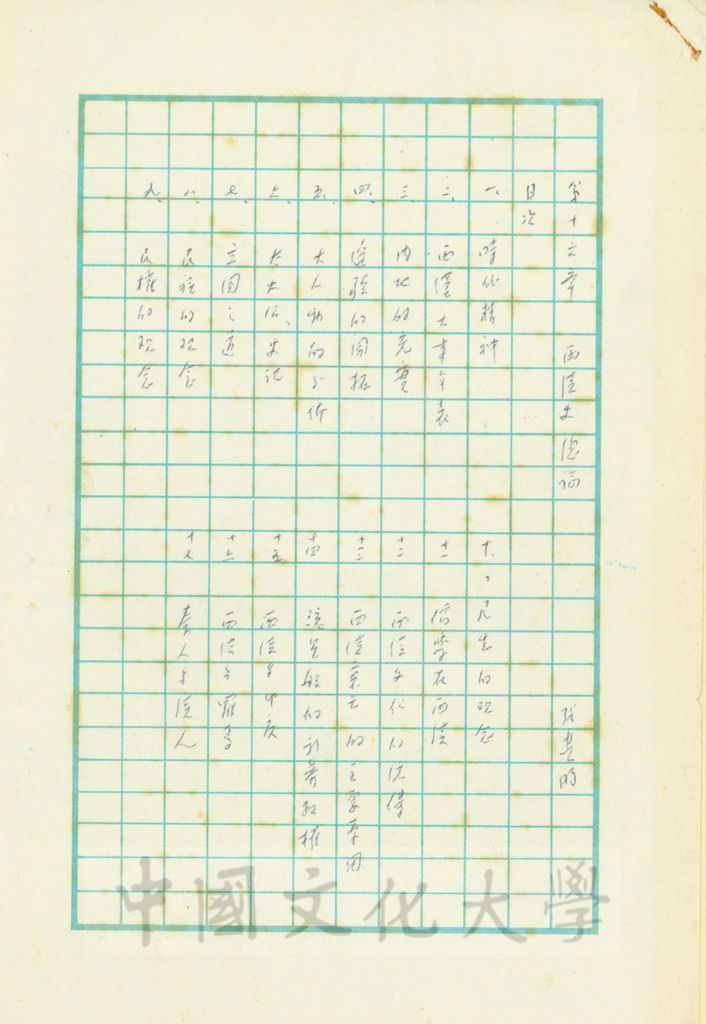 第十六章 西漢史總論 張其昀
目次
一、時代精神
二、西漢大事年表
三、內地的充實
四、邊疆的開拓
五、大人物的分析
六、太史公、史记
七、立國之道
八、民族的观念
九、民權的观念
十、民生的观念
十一 儒學在西漢
十二 西漢文化的
十三 西漢衰亡的主要原因
十四 的新莽政權
十五 西漢与印度
十六 西漢与羅馬
十七 秦人与漢人
中國文化大學